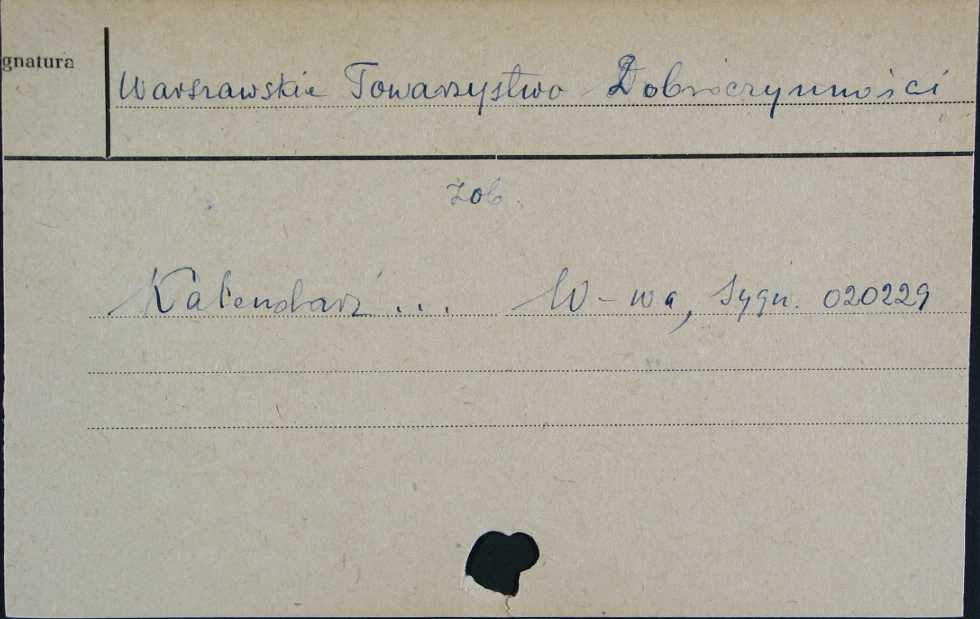 gnatura
Warszawskie Towarzystwo Dobroczynności
zob.
Kalendarz ... W-wa, sygn. 020229